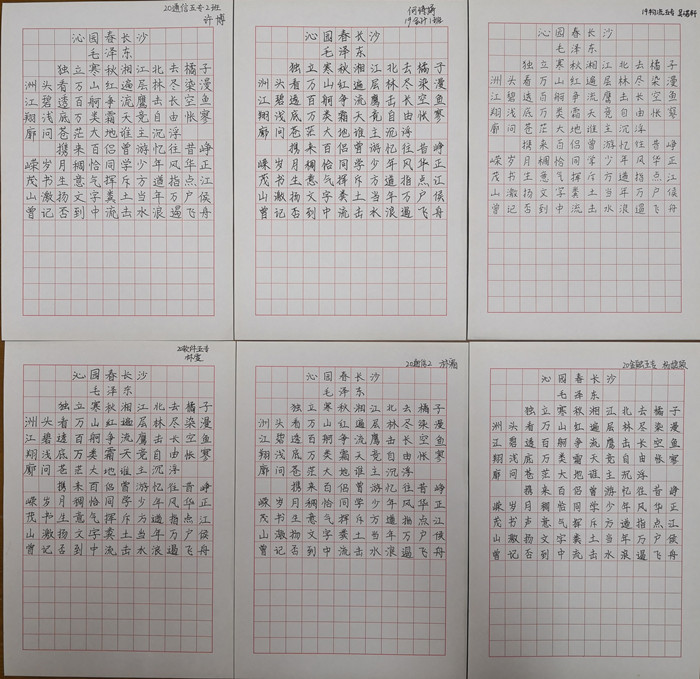 20通信五专2班
许博
沁园春长沙
毛泽东
独立寒秋湘江北去橘子
洲头看万山红遍层林尽染漫
江碧透百舸争流鹰击长空鱼
翔浅底万类霜天竞自由怅寥
廓问苍茫大地谁主沉浮
携来百侣曾游忆往昔峥
嵘岁月稠恰同学少年风华正
茂书生意气挥斥方遒指点江
山激扬文字粪土当年万户侯
曾记否到中流击水浪遏飞舟
19会计1班
沁园春长沙
毛泽东
独立寒秋湘江北去橘子
洲头看万山红遍层林尽染漫
江碧透百舸争流鹰击长空鱼
翔浅底万类霜天竞自由怅寥
廓问苍茫大地谁主沉浮
携来百侣曾游忆往昔峥
嵘岁月稠恰同学少年风华正
茂书生意气挥斥方遒指点江
山激扬文字粪土当年万户侯
曾记否到中流击水浪遏飞舟
19物流五专
沁园春长沙
毛泽东
独立寒秋湘江北去橘子
洲头看万山红遍层林尽染漫
江碧透百舸争流鹰击长空鱼
翔浅底万类霜天竞自由怅寥
廓问苍茫大地谁主沉浮
携来百侣曾游忆往昔峥
嵘岁月稠恰同学少年风华正
茂书生意气挥斥方遒指点江
山激扬文字粪土当年万户侯
曾记否到中流击水浪遏飞舟
20软件五专
沁园春长沙
毛泽东
独立寒秋湘江北去橘子
洲头看万山红遍层林尽染漫
江碧透百舸争流鹰击长空鱼
翔浅底万类霜天竞自由怅寥
廓问苍茫大地谁主沉浮
携来百侣曾游忆往昔峥
嵘岁月稠恰同学少年风华正
茂书生意气挥斥方遒指点江
山激扬文字粪土当年万户侯
曾记否到中流击水浪遏飞舟
20通信2
沁园春长沙
毛泽东
独立寒秋湘江北去橘子
洲头看万山红遍层林尽染漫
江碧透百舸争流鹰击长空鱼
翔浅底万类霜天竞自由怅寥
廓问苍茫大地谁主沉浮
携来百侣曾游忆往昔峥
嵘岁月稠恰同学少年风华正
茂书生意气挥斥方遒指点江
山激扬文字粪土当年万户侯
曾记否到中流击水浪遏飞舟
20金融五专
沁园春长沙
毛泽东
独立寒秋湘江北去橘子
洲头看万山红遍层林尽染漫
江碧透百舸争流鹰击长空鱼
翔浅底万类霜天竞自由怅寥
廓问苍茫大地谁主沉浮
携来百侣曾游忆往昔峥
嵘岁月稠恰同学少年风华正
茂书声意气挥斥方遒指点江
山激扬文字粪土当年万户侯
曾记否到中流击水浪遏飞舟